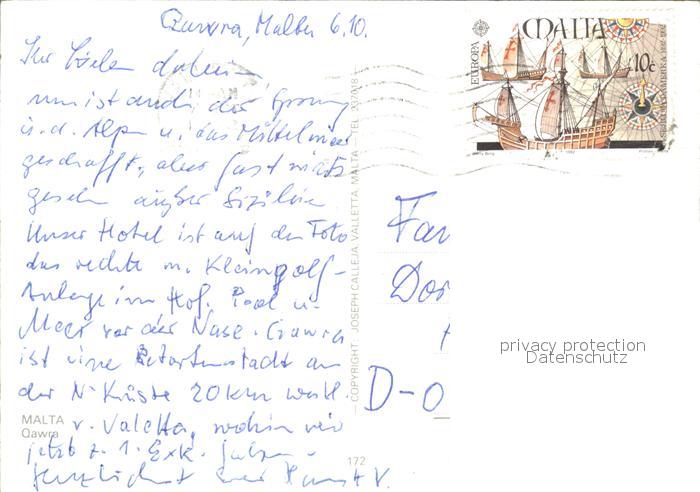 Qawra, Malta 6.10.
Ihr Lieben daheim,
nun ist auch der Sprung
ü. d. Alpen u. das Mittelmeer
geschafft, aber fast nichts
gesehen außer Sizilien
Unser Hotel ist auf dem Foto
das rechte m. Kleingolf-
Anlage im Hof. Pool u.
Meer vor der Nase. Qawra
ist eine an
der N-Küste 20 km westl.
v. Valetta, wohin wir
jetzt z. 1. Exk.
Herzlichst
MALTA
Qawra
172
COPYRIGHT: JOSEPH CALLEJA VALLETTA MALTA — TEL.
EUROPA
MALTA
10c
Fam
Dor
D-O
privacy protection
Datenschutz